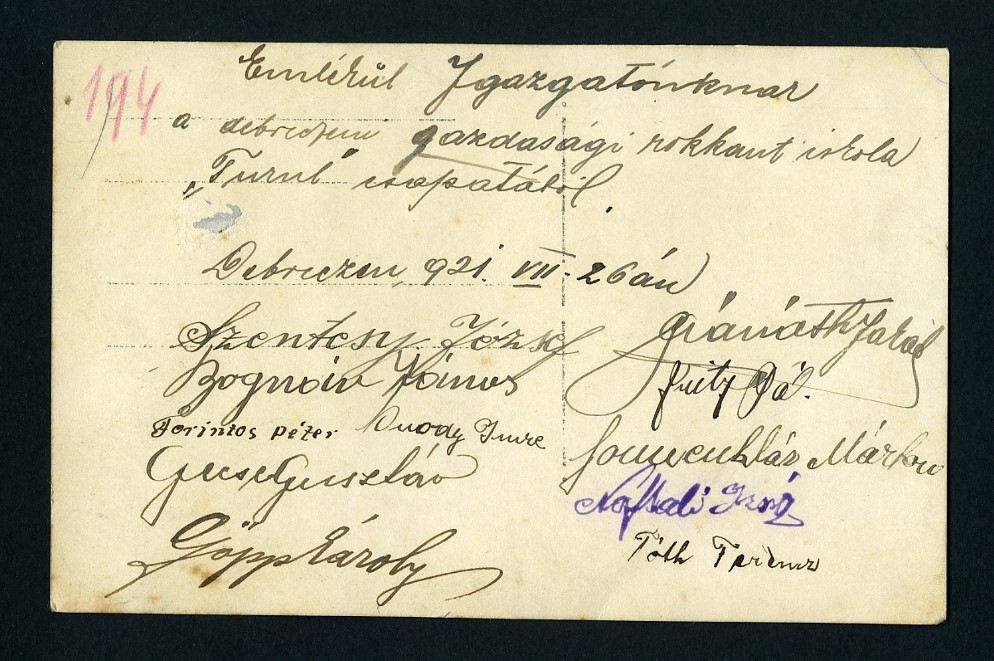 194
Emlékül Igazgatónknar
a debreczeni gazdasági rokkant iskola
„Turul” csapatától.
Debreczen, 921. VII. 26án
Szentesy József
Bognáiv János
Forintos péter Ónody Imre
Guse Gusztáv
Göpp Károly
Fritz Pál.
Márton
Naftali Izsó
Tóth Ferencz